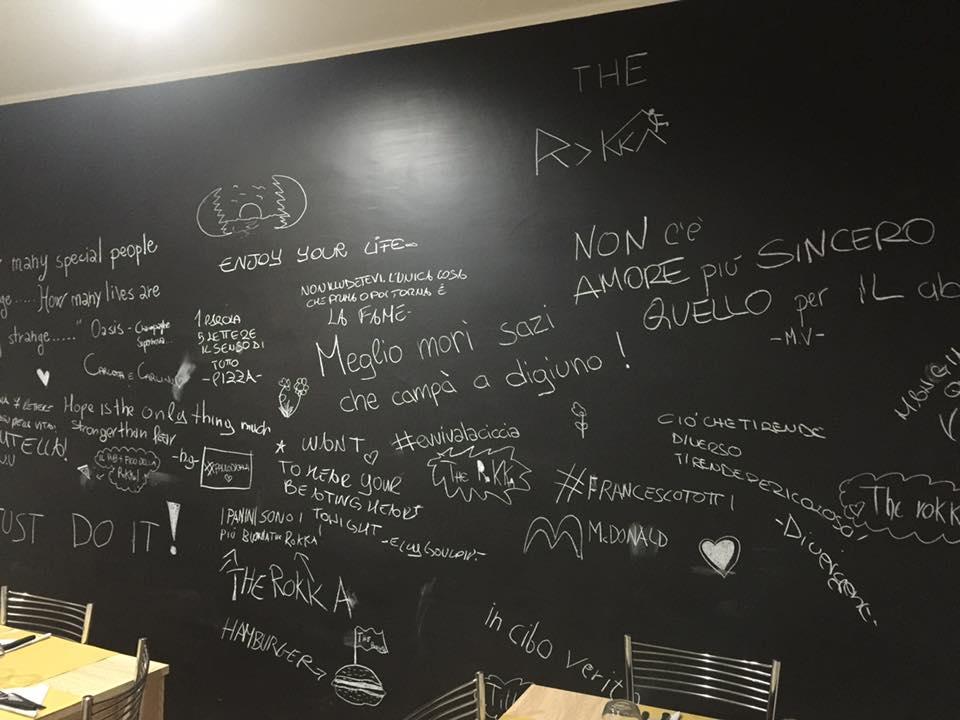 THE
ROKKA
NON c'è
AMORE più SINCERO
QUELLO per IL
-M.V-
ENJOY YOUR LIFE
many special people
How many lives are
strange....." Oasis - Champagne
Supernova...
NON ILLUDETEVI. L'UNICA COSA
CHE PRIMA O POI TORNA È
LA FAME-
1 PAROLA
5 LETTERE
IL SENSO DI
TUTTO
-PIZZA-
Meglio morì sazi
che campà a digiuno!
CARLOTTA E
Hope is the only thing much
stronger than fear
-hg-
UTELLA!
IL PUB + FICO DELLA
Rokka!
JUST DO IT!
* WONT
TO HEAR YOUR
BEATING HEART
TONIGHT
#evvivalaciccia
THE ROKKA
#FRANCESCOTOTTI
McDONALD
CIÓ CHE TI RENDE
DIVERSO
TI RENDE PERICOLOSO
-Divergent-
The rokk
I PANINI SONO I
PIÙ BUONI THE ROKKA!
THE ROKKA
HAMBURGER
THE
in cibo verit